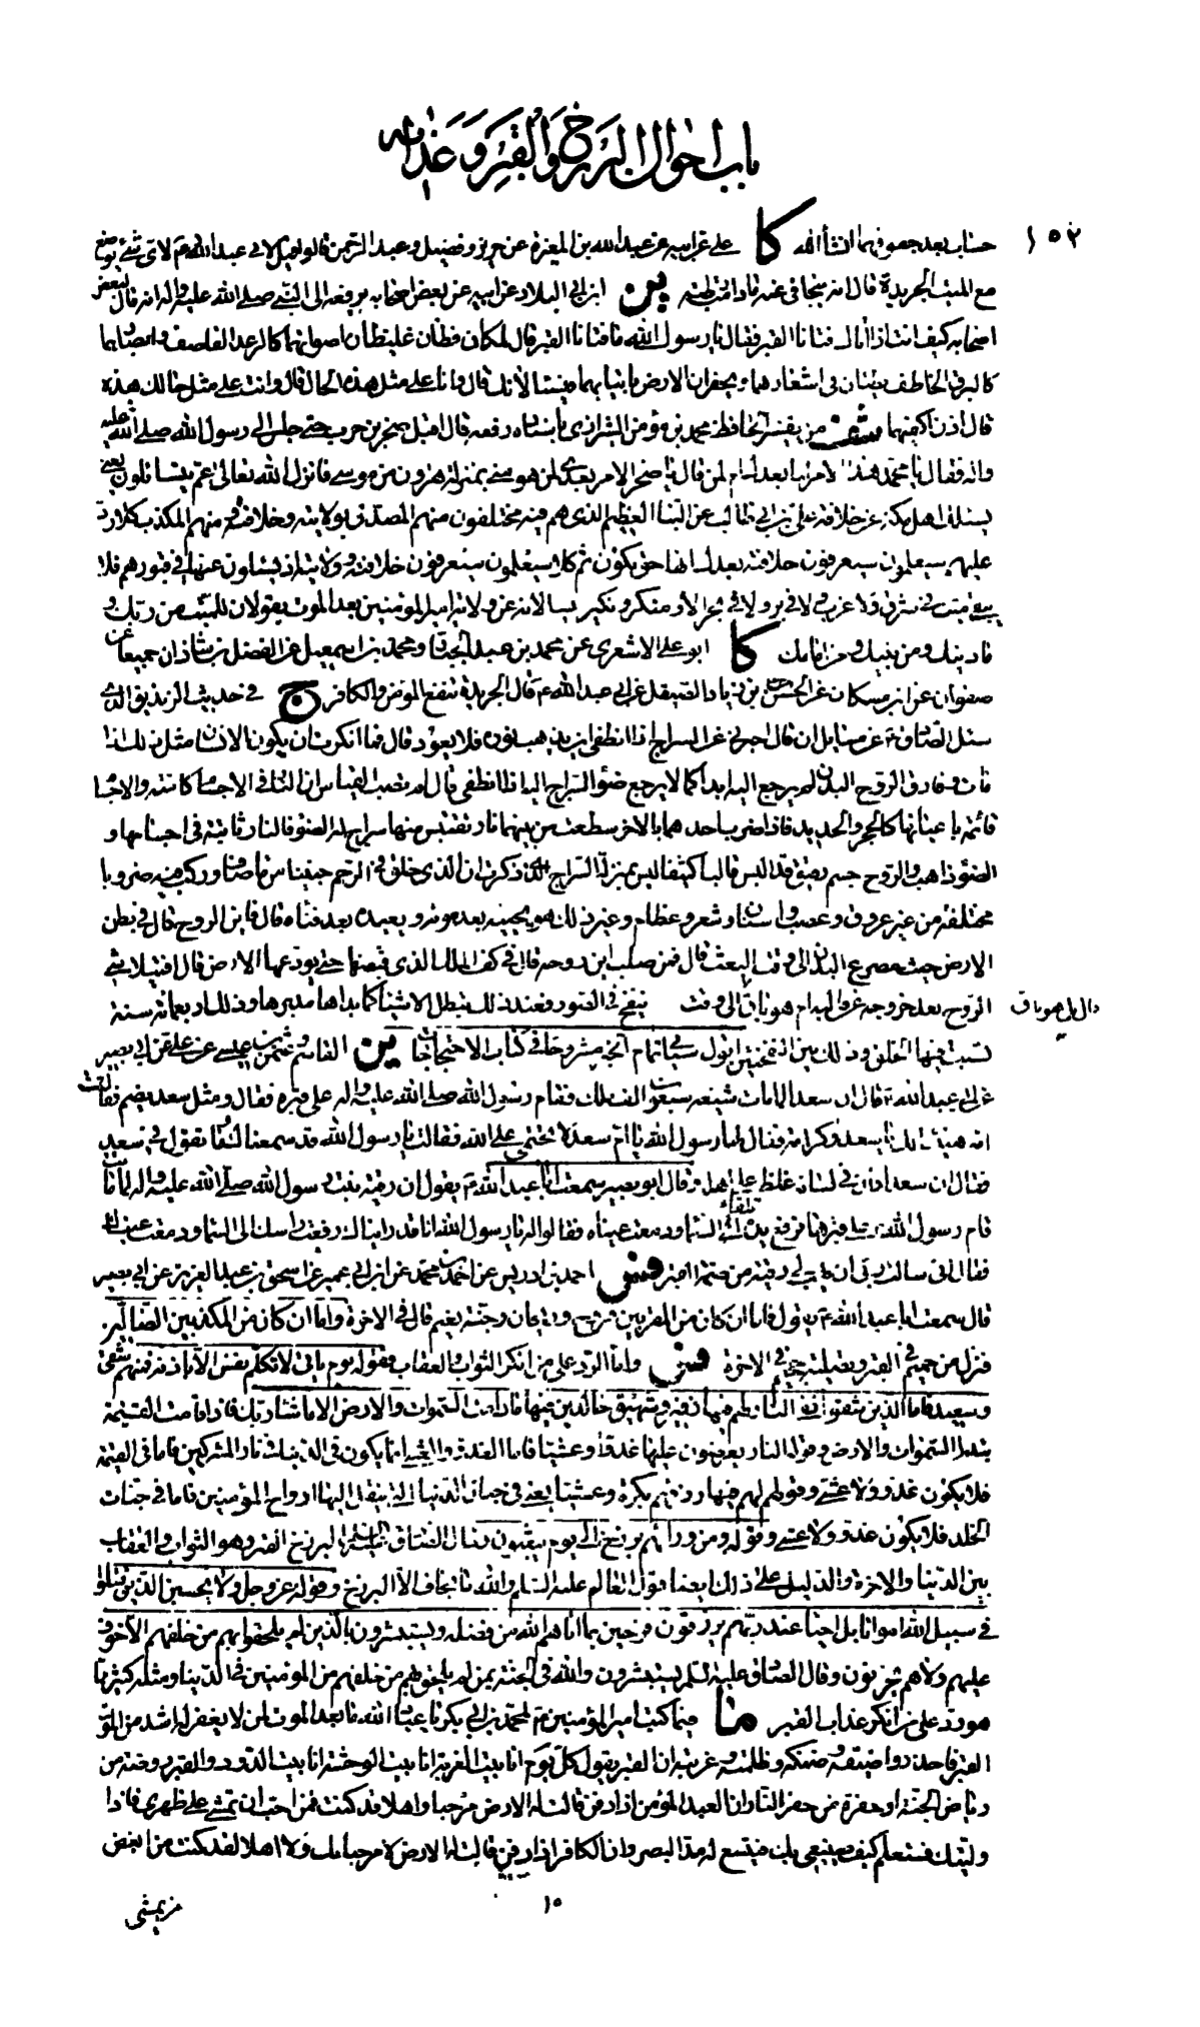 باب احوال البرزخ والقبر وعذابه
١٥٢
حساب بعد جفوفها انشاء الله كا على عن ابيه عن عبد الله بن المغيرة عن حريز وفضيل وعبد الرحمن قالوا قيل لابي عبد الله ع لاي شئ يوضع
مع الميت الجريدة قال انه يتجافى عنه ما دامت رطبة ين ابن ابي البلاد عن ابيه عن بعض اصحابه يرفعه الى النبي صلى الله عليه واله انه قال لبعض
اصحابه كيف انت اذا اتاك فتانا القبر فقال يا رسول الله ما فتانا القبر قال ملكان فظان غليظان اصواتهما كالرعد القاصف وابصارهما
كالبرق الخاطف يطئان في اشعارهما ويحفران الارض بانيابهما فيسئلانك قال وانا على مثل هذه الحال قال وانت على مثل حالك هذه
قال اذن اكفيهما شف من تفسير الحافظ محمد بن مؤمن الشيرازي باسناده رفعه قال اقبل صخر بن حرب حتى جلس الى رسول الله صلى الله عليه
واله فقال يا محمد هذا الامر لنا بعدك ام لمن قال يا صخر الامر بعدي لمن هو مني بمنزلة هرون من موسى فانزل الله تعالى عم يتسائلون يعني
يسئلك اهل مكة عن خلافة علي بن ابي طالب عن النبا العظيم الذي هم فيه مختلفون منهم المصدق بولايته وخلافته ومنهم المكذب كلا رد
عليهم سيعلمون سيعرفون خلافته بعدك انها حق يكون ثم كلا سيعلمون سيعرفون خلافته وولايته اذ يسئلون عنها في قبورهم فلا
يبقى ميت في شرق ولا غرب ولا في بر ولا في بحر الا ومنكر ونكير يسالانه عن ولاية امير المؤمنين بعد الموت يقولان للميت من ربك و
ما دينك ومن نبيك ومن امامك كا ابو علي الاشعري عن محمد بن عبد الجبار ومحمد بن اسمعيل عن الفضل بن شاذان جميعا عن
صفوان عن ابن مسكان عن الحسن بن زياد الصيقل عن ابي عبد الله ع قال الجريدة تنفع المؤمن والكافر ج في حديث الزنديق الذي
سئل الصادق ع عن مسائل ان قال اخبرني عن السراج اذا انطفى اين يذهب نوره قال يذهب فلا يعود قال فما انكرت ان يكون الانسان مثل ذلك اذا
مات وفارق الروح البدن لم يرجع اليه ابدا كما لا يرجع ضوء السراج اليه اذا انطفى قال لم تصب القياس ان النار في الاجسام كامنة والاجسام
قائمة باعيانها كالحجر والحديد فاذا ضرب احدهما بالاخر سطعت من بينهما نار تقتبس منها سراج له الضوء فالنار ثابتة في اجسامها و
الضوء ذاهب والروح جسم رقيق قد البس قالبا كثيفا ليس بمنزلة السراج الذي ذكرت ان الذي خلق في الرحم جنينا من ماء صاف وركب فيه ضروبا
مختلفة من عروق وعصب واسنان وشعر وعظام وغير ذلك هو يحييه بعد موته ويعيده بعد فنائه قال فاين الروح قال في بطن
الارض حيث مصرع البدن الى وقت البعث قال فمن صلب اين روحه قال في كف الملك الذي قبضها حتى يودعها الارض قال افيتلاشى
الروح بعد خروجه عن قالبه ام هو باق قال بل هو باق الى وقت ينفخ في الصور فعند ذلك تبطل الاشياء كما بداها مدبرها وذلك اربعمائة سنة
تسبت فيها الخلق وذلك بين النفختين اقول سياتي تمام الخبر مشروحا في كتاب الاحتجاجات ين القاسم وعثمن بن عيسى عن علي عن ابي بصير
عن ابي عبد الله ع قال ان سعدا لما مات شيعه سبعون الف ملك فقام رسول الله صلى الله عليه واله على قبره فقال ومثل سعد يضم فقالت
امه هنيئا لك يا سعد وكرامة فقال لها رسول الله يا ام سعد لا تحتمي على الله فقالت يا رسول الله قد سمعناك وما تقول في سعد
فقال ان سعدا كان في لسانه غلظ على اهله وقال ابو بصير سمعت ابا عبد الله ع يقول ان رقية بنت رسول الله صلى الله عليه واله لما ماتت
قام رسول الله ص على قبرها فرفع يده تلقاء السماء ودمعت عيناه فقالوا له يا رسول الله انا قد رايناك رفعت راسك الى السماء ودمعت عيناك
فقال اني سالت ربي ان يهب لي رقية من ضمة القبر فس احمد بن ادريس عن احمد بن محمد عن ابن ابي عمير عن اسحق بن عبد العزيز عن ابي بصير
قال سمعت ابا عبد الله ع يقول فاما ان كان من المقربين فروح وريحان وجنة نعيم قال في الاخرة واما ان كان من المكذبين الضالين
فنزل من حميم في القبر وتصلية جحيم في الاخرة فس واما الرد على من انكر الثواب والعقاب فقوله يوم ياتي لا تكلم نفس الا باذنه فمنهم شقي
وسعيد فاما الذين شقوا ففي النار لهم فيها زفير وشهيق خالدين فيها ما دامت السموات والارض الا ما شاء ربك فاذا قامت القيمة
تبدل السموات والارض وقوله النار يعرضون عليها غدوا وعشيا فاما الغدو والعشي انما يكون في الدنيا في نار المشركين فاما في القيمة
فلا يكون غدو ولا عشي وقوله لهم رزقهم فيها بكرة وعشيا يعني في جنان الدنيا التي ينقل اليها ارواح المؤمنين فاما في جنات
الخلد فلا يكون غدو ولا عشي وقوله ومن ورائهم برزخ الى يوم يبعثون فقال الصادق عليه السلم البرزخ القبر وهو الثواب والعقاب
بين الدنيا والاخرة والدليل على ذلك ايضا قول العالم عليه السلم والله ما نخاف الا البرزخ وقوله عز وجل ولا تحسبن الذين قتلوا
في سبيل الله امواتا بل احياء عند ربهم يرزقون فرحين بما اتاهم الله من فضله ويستبشرون بالذين لم يلحقوا بهم من خلفهم الا خوف
عليهم ولا هم يحزنون وقال الصادق عليه السلم يستبشرون والله في الجنة بمن لم يلحق بهم من خلفهم من المؤمنين في الدنيا ومثله كثير مما
هو رد على من انكر عذاب القبر ما فيما كتب امير المؤمنين ع لمحمد بن ابي بكر يا عباد الله ما بعد الموت لمن لا يغفر له اشد من الموت
القبر فاحذروا ضيقه وضنكه وظلمته وغربته ان القبر يقول كل يوم انا بيت الغربة انا بيت الوحشة انا بيت الدود والقبر روضة من
رياض الجنة او حفرة من حفر النار ان العبد المؤمن اذا دفن قالت له الارض مرحبا واهلا قد كنت ممن احب ان تمشي على ظهري فاذا
وليتك فستعلم كيف صنيعي بك فيتسع له مد البصر وان الكافر اذا دفن قالت له الارض لا مرحبا بك ولا اهلا لقد كنت من ابغض
١٥
من يمشي